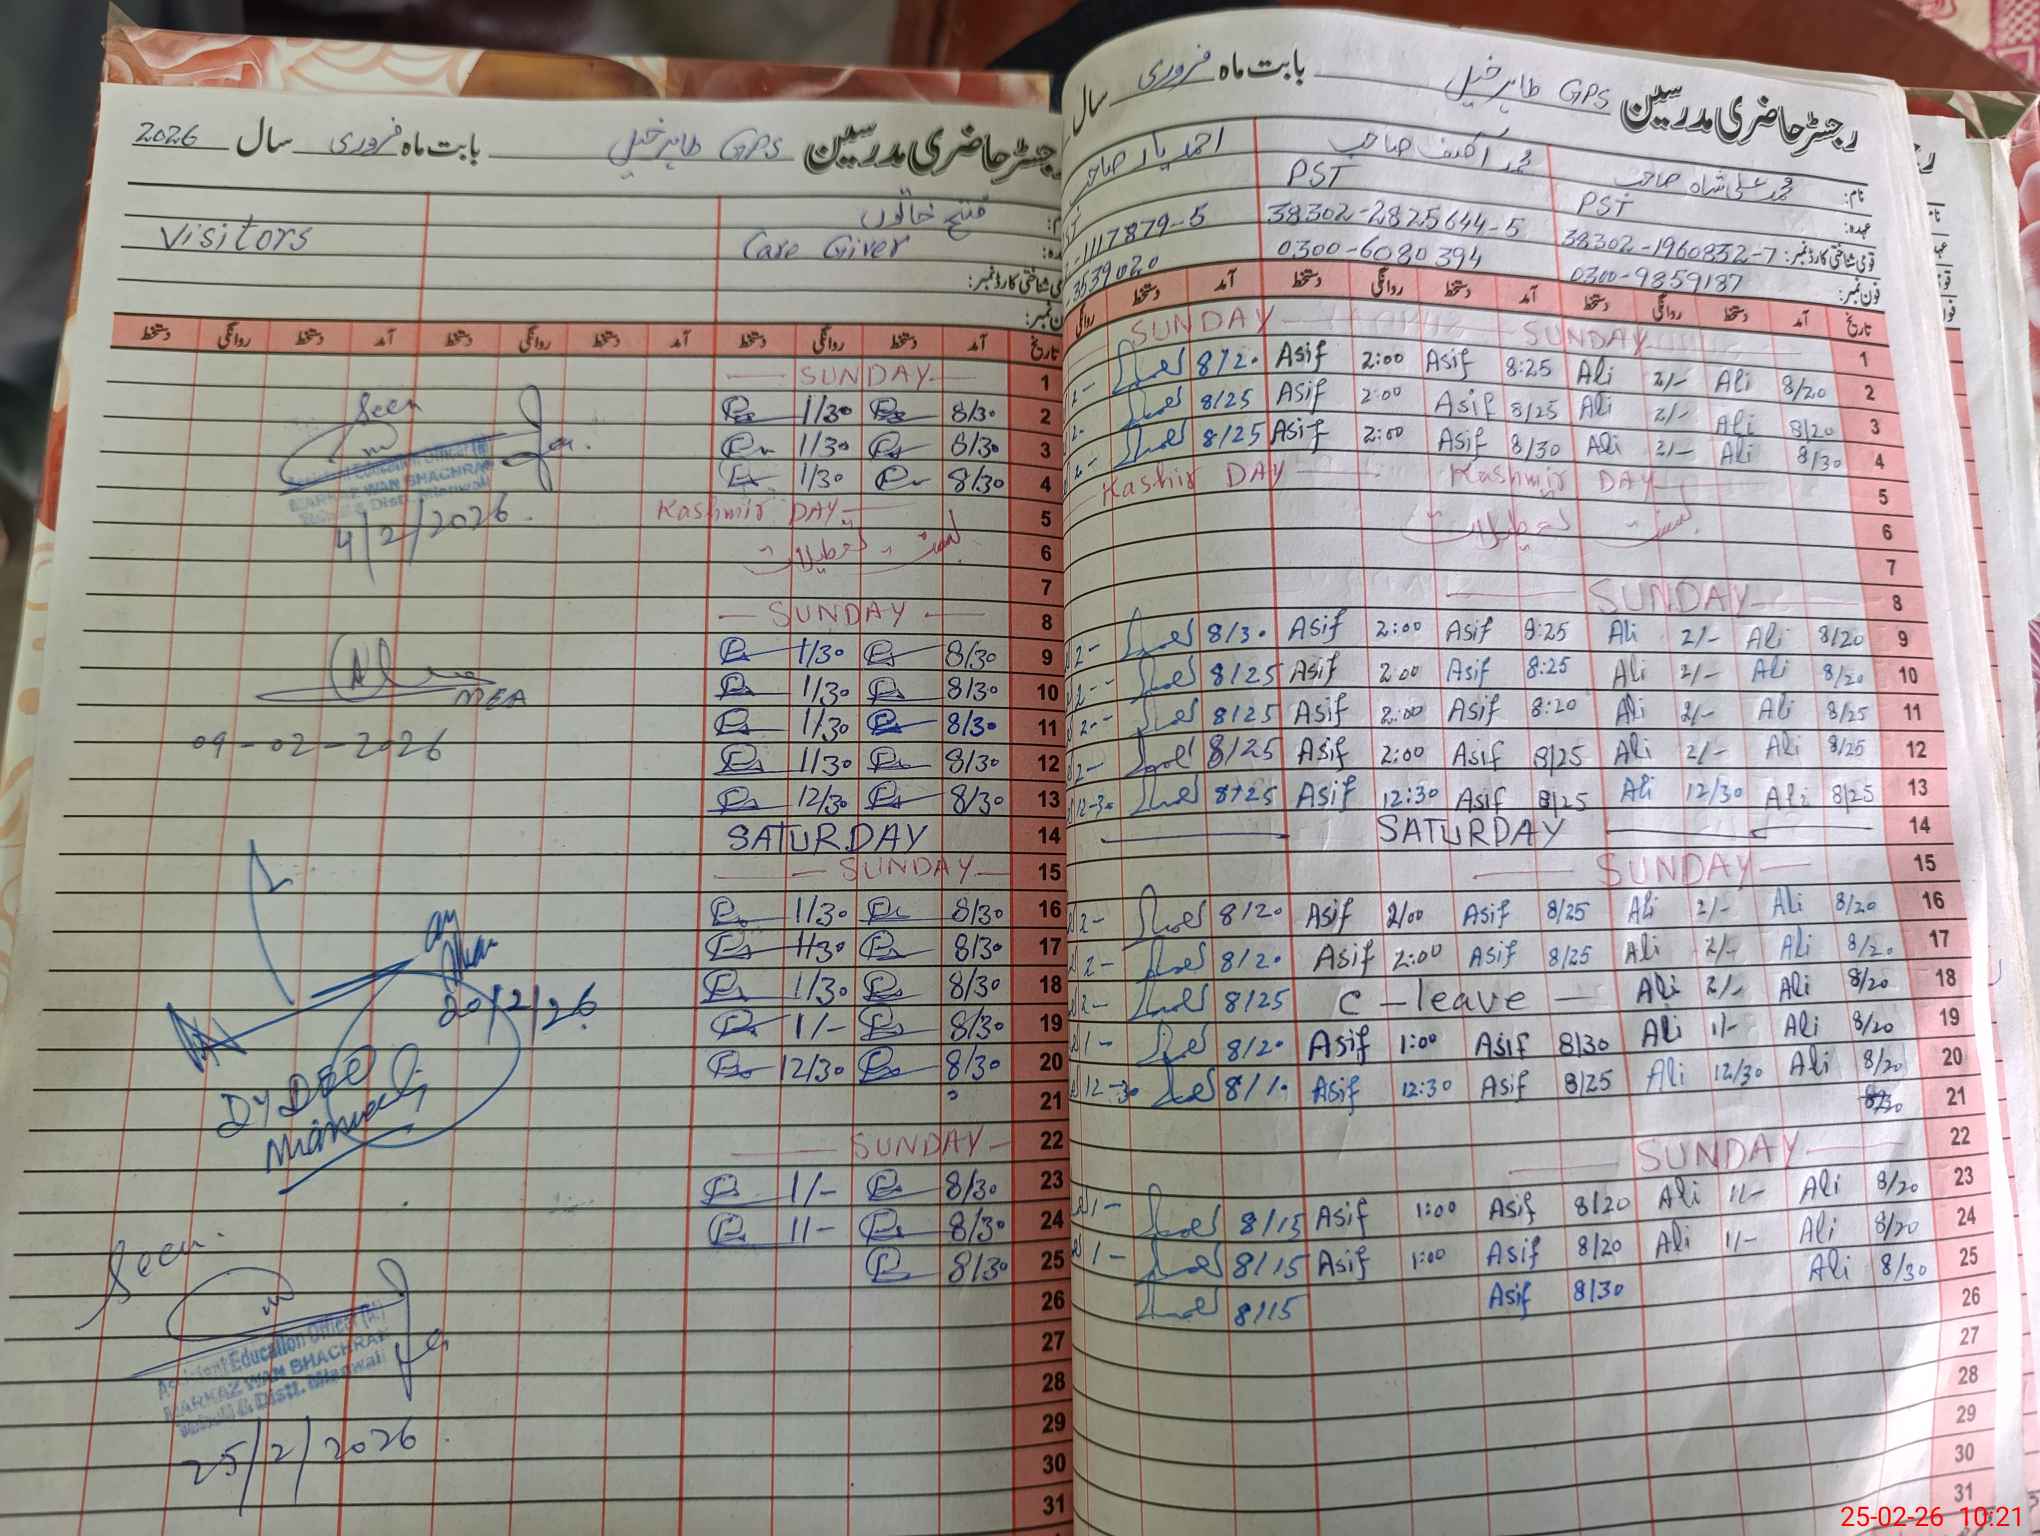 رجسٹر حاضری مدرسین GPS طاہر خیل بابت ماہ فروری سال 2026
Visitors
Care Giver
تاریخ آمد دستخط روانگی دستخط آمد دستخط روانگی دستخط آمد دستخط روانگی دستخط
1 — SUNDAY —
2 8/30 1/30
3 8/30 1/30
4 8/30 1/30
5 Kashmir DAY
6
7
8 — SUNDAY —
9 8/30 1/30
10 8/30 1/30
11 8/30 1/30
12 8/30 1/30
13 8/30 12/30
14 SATURDAY
15 — SUNDAY —
16 8/30 1/30
17 8/30 1/30
18 8/30 1/30
19 8/30 1/-
20 8/30 12/30
21
22 — SUNDAY —
23 8/30 1/-
24 8/30 1/-
25 8/30
26
27
28
29
30
31
Seen
Assistant Education Officer
MARKAZ WAN BHACHRAN
Distt. Mianwali
4/2/2026
MEA
09-02-2026
20/2/26
DY DEO
Mianwali
Seen
Assistant Education Officer
MARKAZ WAN BHACHRAN
Distt. Mianwali
25/2/2026
رجسٹر حاضری مدرسین GPS طاہر خیل بابت ماہ فروری سال
نام: محمد علی شاہ صاحب
احمد یار صاحب
عہدہ: PST PST
قومی شناختی کارڈ نمبر: 38302-1960832-7 38302-2825644-5 1117879-5
فون نمبر: 0300-9859187 0300-6080394 3539020
تاریخ آمد دستخط روانگی دستخط آمد دستخط روانگی دستخط آمد دستخط روانگی
1 SUNDAY — SUNDAY
2 8/20 Ali 2/- Ali 8:25 Asif 2:00 Asif 8/20 2-
3 8/20 Ali 2/- Ali 8/25 Asif 2:00 Asif 8/25 2-
4 8/30 Ali 2/- Ali 8/30 Asif 2:00 Asif 8/25 2-
5 Kashmir DAY Kashir DAY
6
7
8 — SUNDAY —
9 8/20 Ali 2/- Ali 8:25 Asif 2:00 Asif 8/30 2-
10 8/20 Ali 2/- Ali 8:25 Asif 2:00 Asif 8/25 2-
11 8/25 Ali 2/- Ali 8:20 Asif 2:00 Asif 8/25 2-
12 8/25 Ali 2/- Ali 8/25 Asif 2:00 Asif 8/25 2-
13 8/25 Ali 12/30 Ali 8/25 Asif 12:30 Asif 8/25 12-30
14 SATURDAY
15 — SUNDAY —
16 8/20 Ali 2/- Ali 8/25 Asif 2/00 Asif 8/20 2-
17 8/20 Ali 2/- Ali 8/25 Asif 2:00 Asif 8/20 2-
18 8/20 Ali 2/- Ali C-leave — 8/25 2-
19 8/20 Ali 1/- Ali 8/30 Asif 1:00 Asif 8/20 1-
20 8/20 Ali 12/30 Ali 8/25 Asif 12:30 Asif 8/10 12-30
21
22 — SUNDAY —
23 8/20 Ali 1/- Ali 8/20 Asif 1:00 Asif 8/15 1-
24 8/20 Ali 1/- Ali 8/20 Asif 1:00 Asif 8/15 1-
25 8/30 Ali 8/30 Asif 8/15
26
27
28
29
30
31
25-02-26 10:21